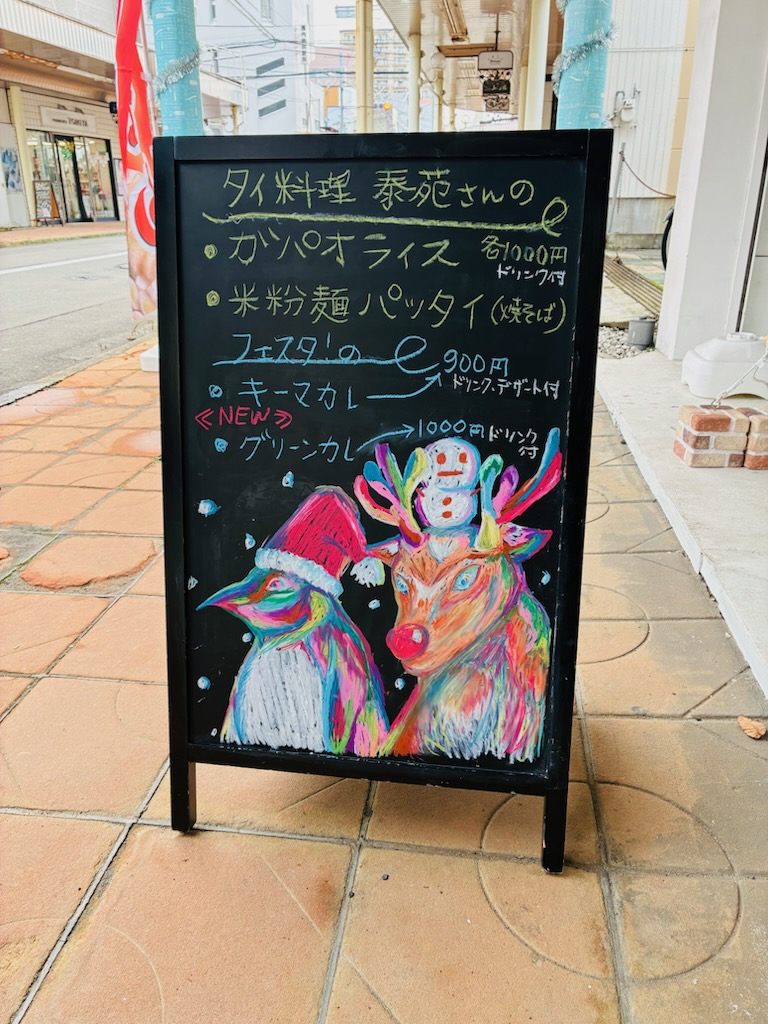 タイ料理 泰苑さんの
・ガパオライス 各1000円
ドリンク付
・米粉麺パッタイ(焼そば)
フェスタ!の
900円
・キーマカレー
ドリンク、デザート付
≪NEW≫
・グリーンカレー
1000円ドリンク
付